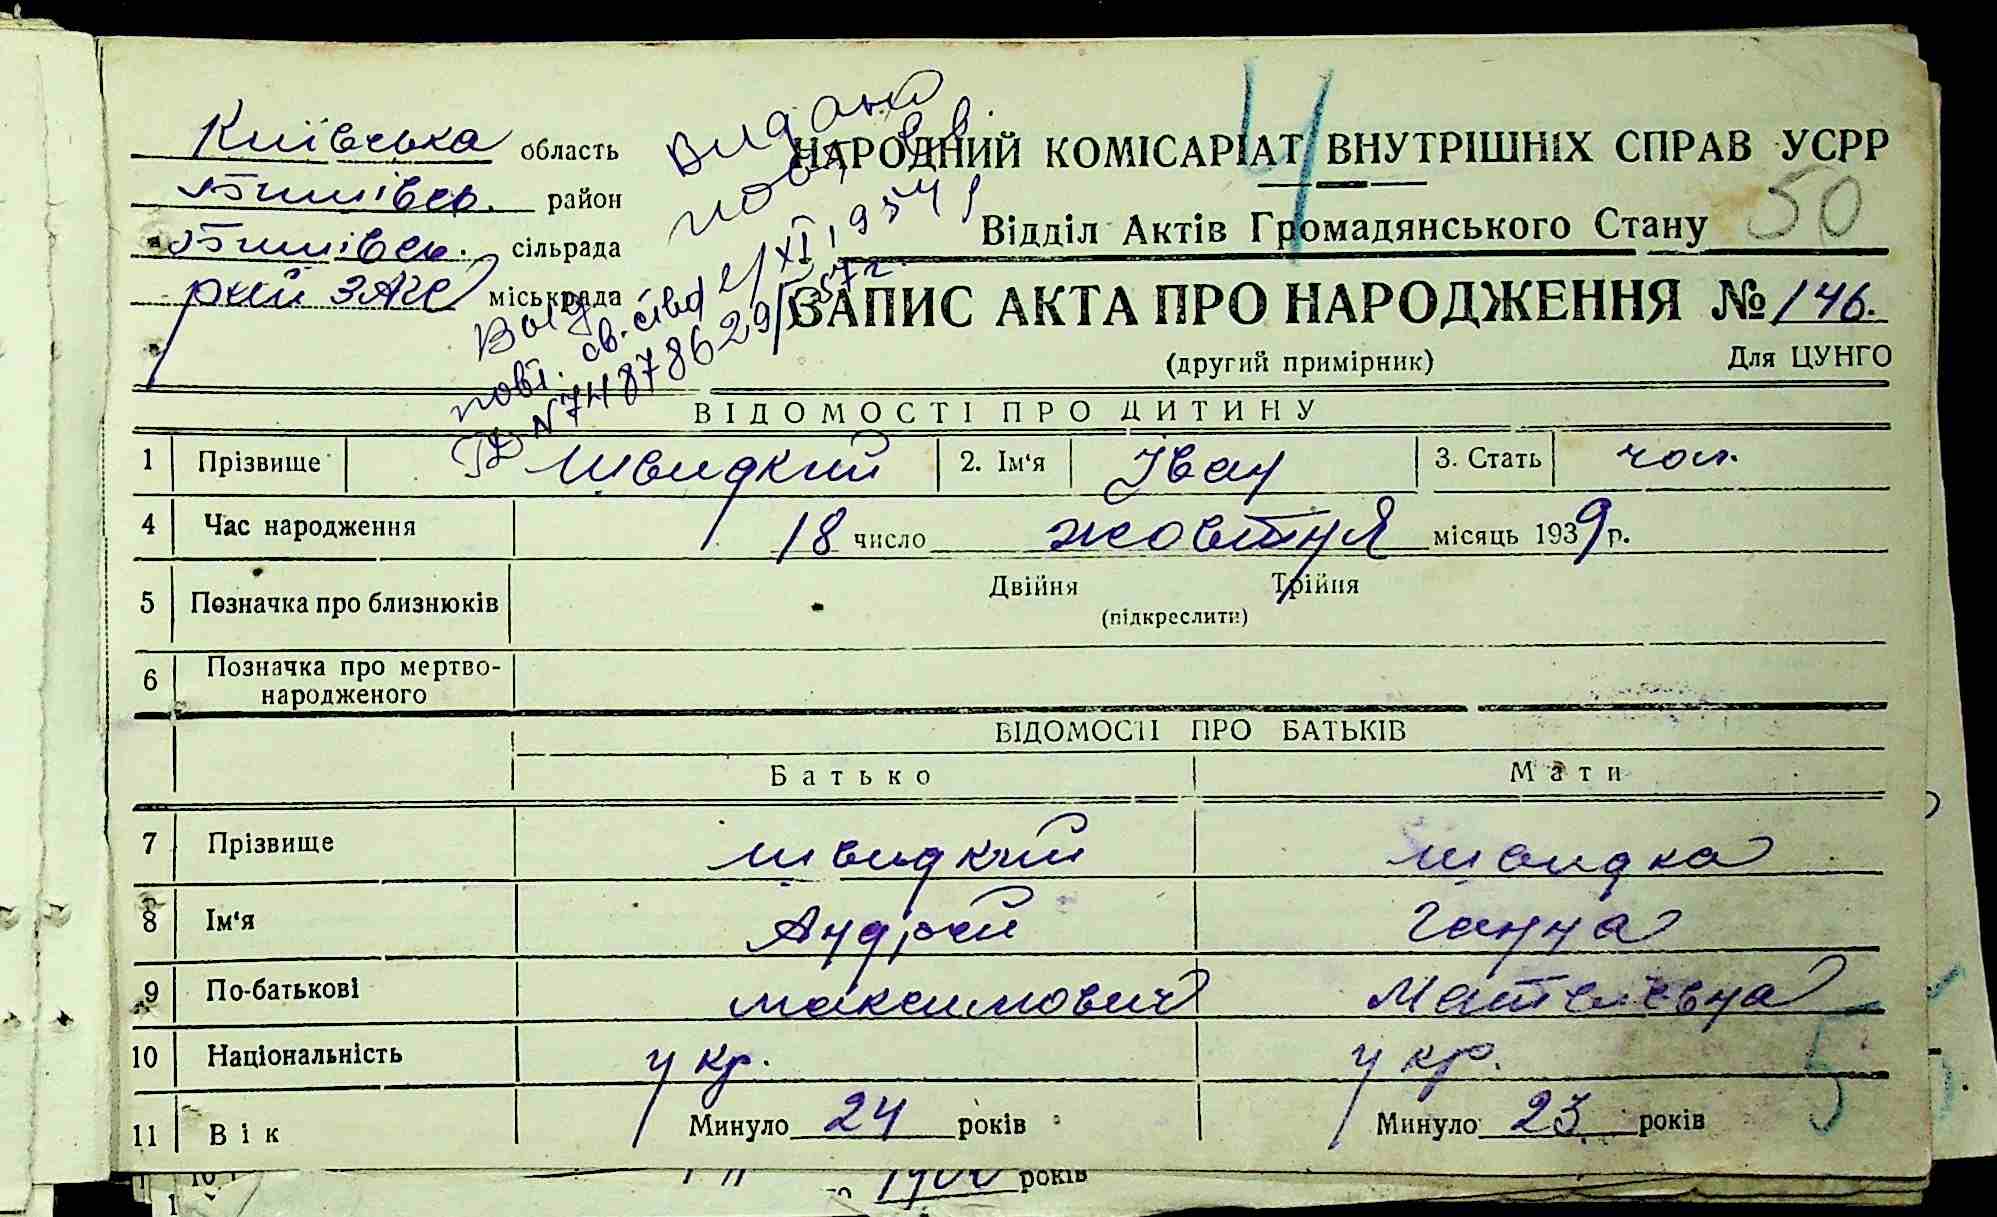 Київська область
район
сільрада
міськрада
Видано
повт. св.
НАРОДНИЙ КОМІСАРІАТ ВНУТРІШНІХ СПРАВ УСРР
4
Відділ Актів Громадянського Стану
50
ЗАПИС АКТА ПРО НАРОДЖЕННЯ № 146.
(другий примірник) Для ЦУНГО
повт. св.
ВІДОМОСТІ ПРО ДИТИНУ
1 Прізвище Швидкий 2. Ім‘я Іван 3. Стать чол.
4 Час народження 18 число жовтня місяць 1939 р.
5 Позначка про близнюків Двійня Трійня
(підкреслити)
6 Позначка про мертво-
народженого
ВІДОМОСТІ ПРО БАТЬКІВ
Батько Мати
7 Прізвище Швидкий Швидка
8 Ім‘я Андрей Ганна
9 По-батькові Максимович Матвеевна
10 Національність укр. укр.
11 Вік Минуло 24 років Минуло 23 років
років